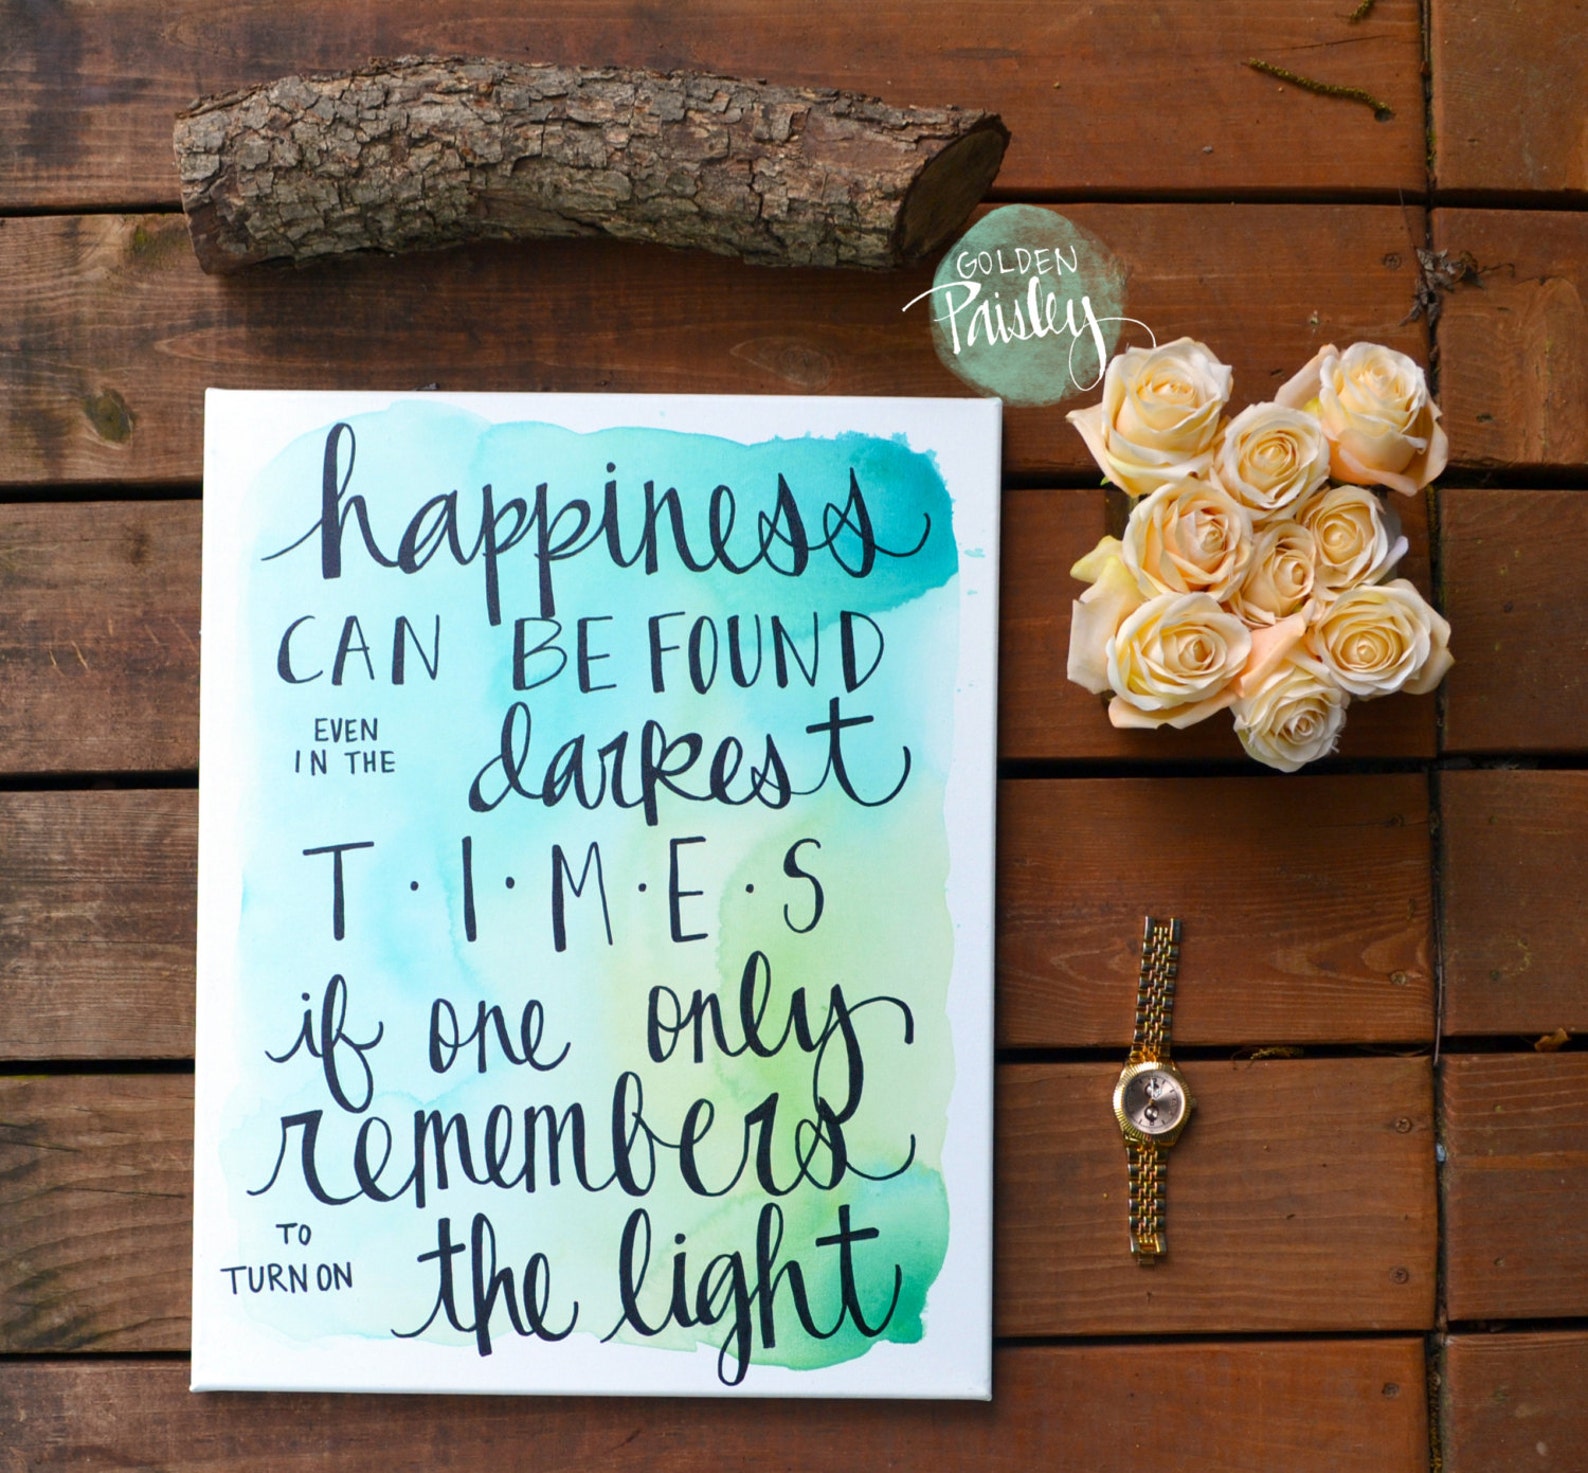 GOLDEN
Paisley
happiness
CAN BE FOUND
EVEN
IN THE
darkest
T·I·M·E·S
if one only
remembers
TO
TURN ON
the light